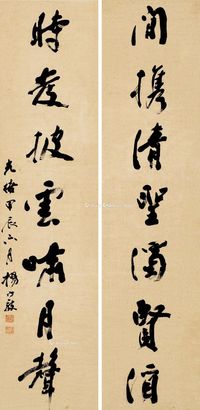 閒攜清聖濁賢酒
時發披雲嘯月聲
光緒甲辰六月楊守敬